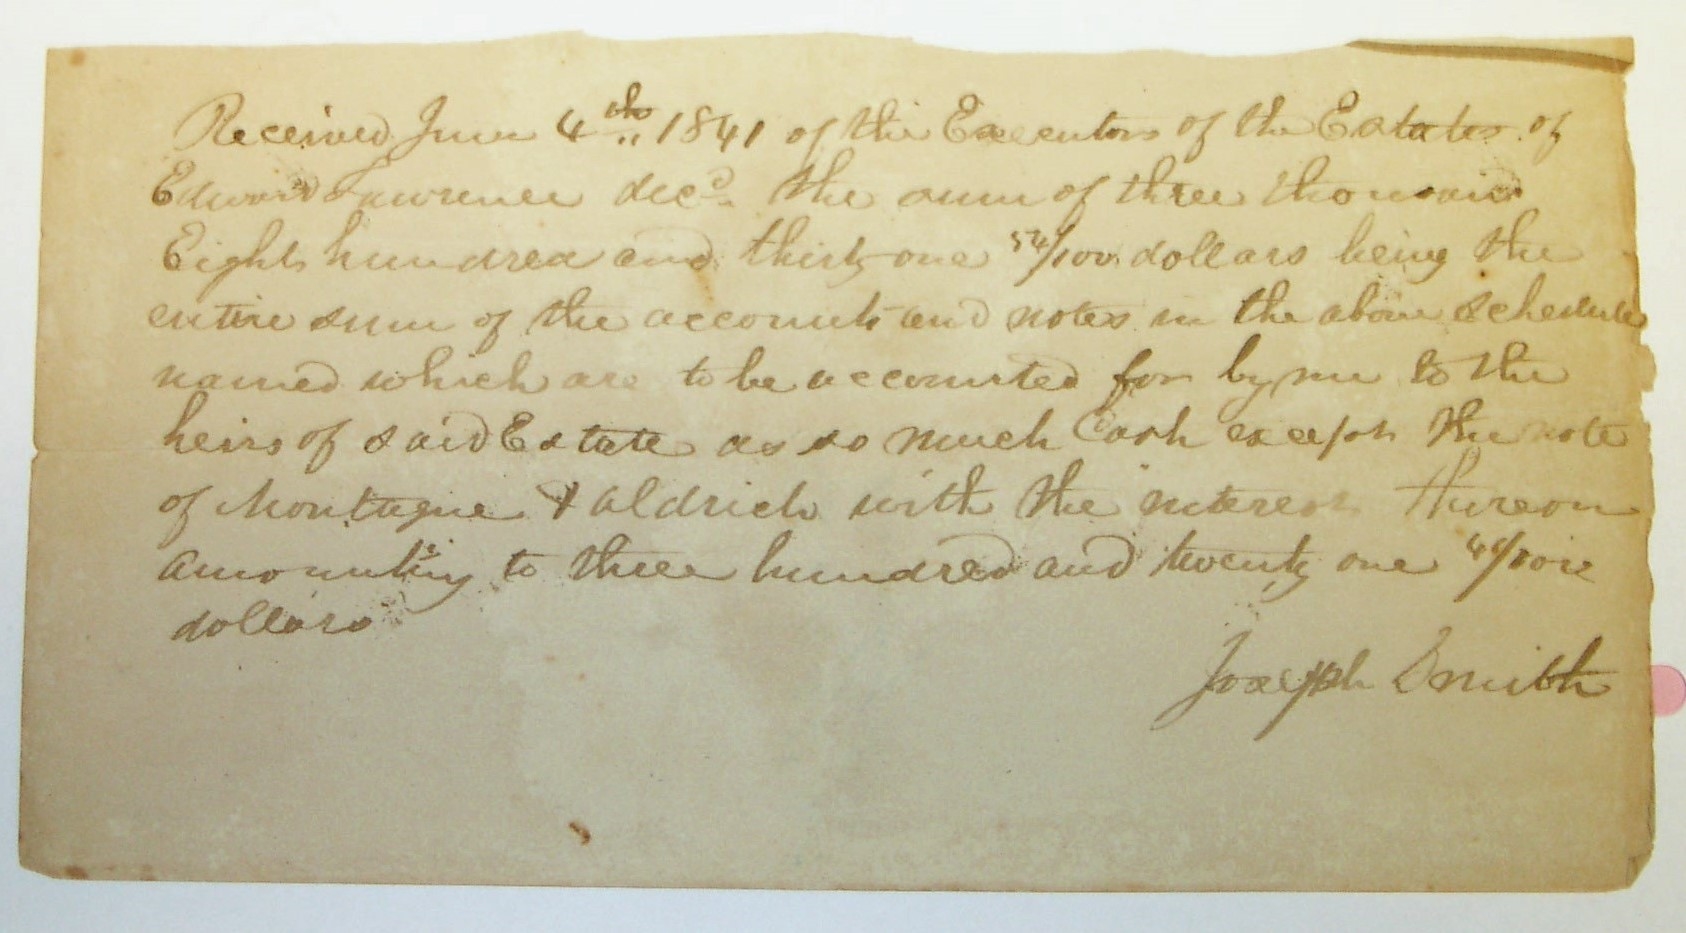 Received June 4th 1841 of the Executors of the Estates of
Edward Lawrence decd. the sum of three thousand
Eight hundred and thirty one 54/100 dollars being the
entire sum of the accounts and notes in the above schedule
named which are to be accounted for by me to the
heirs of said Estate as so much Cash except the note
of Montague & Aldrich with the interest thereon
amounting to three hundred and twenty one
dollars
Joseph Smith